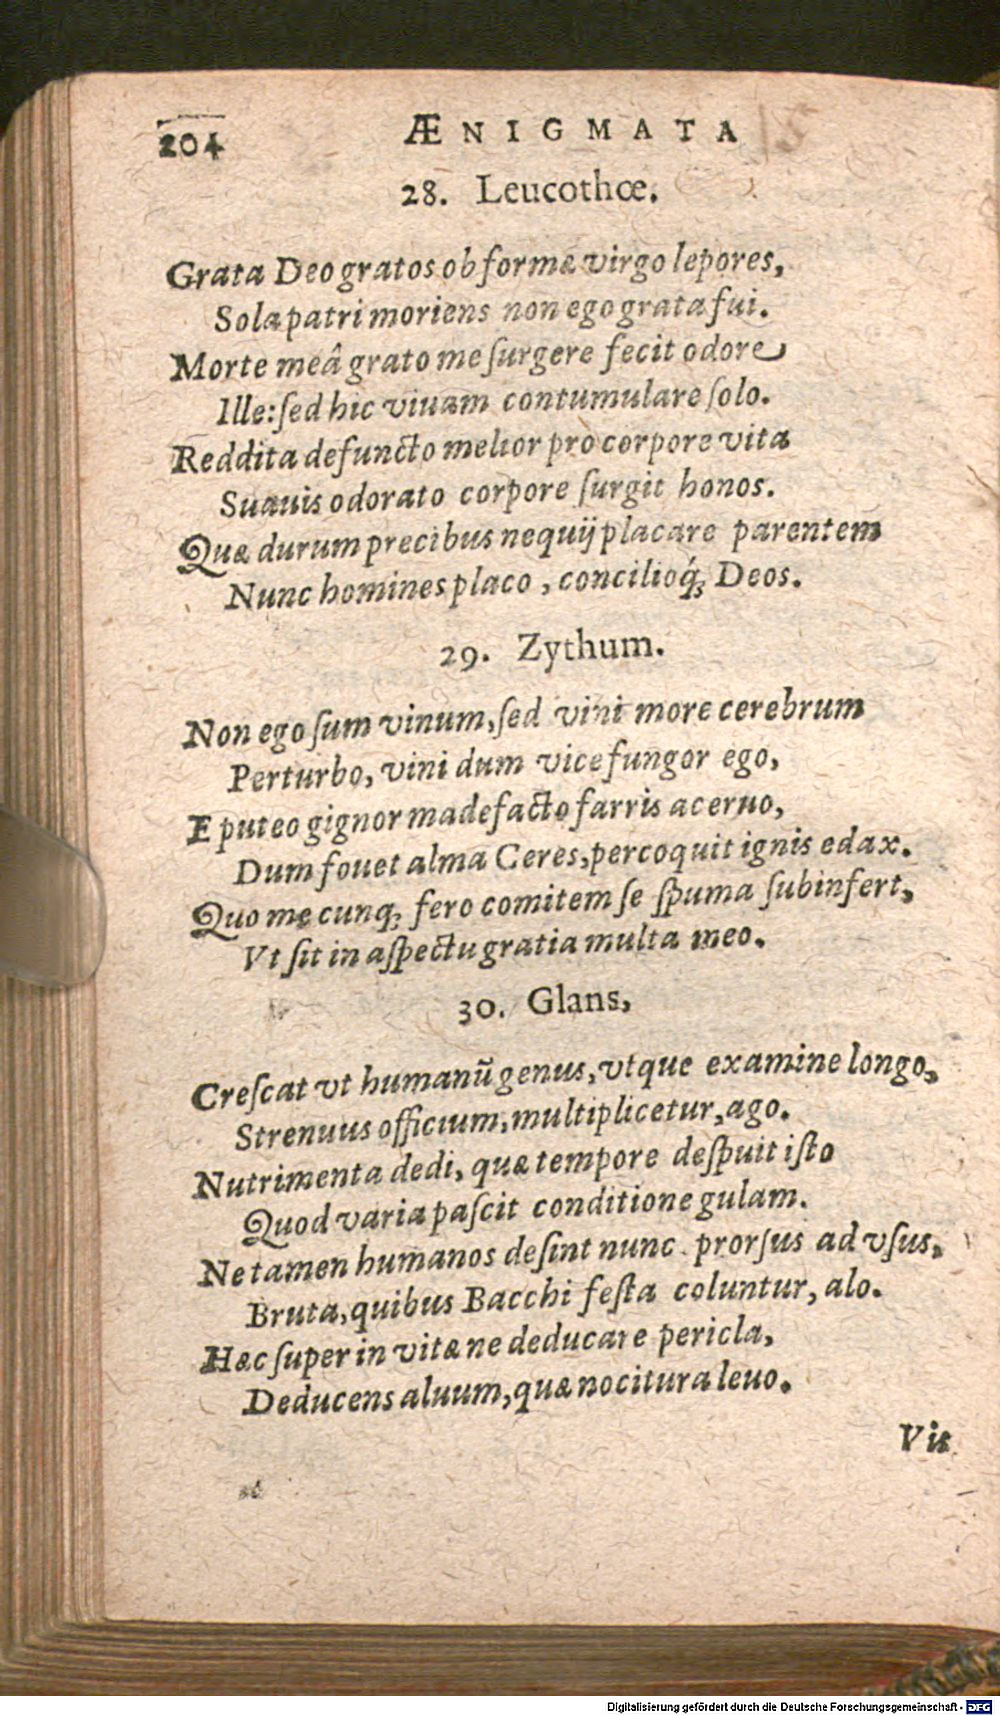 204 ÆNIGMATA
28. Leucothœ.
Grata Deo gratos ob formæ virgo lepores,
Sola patri moriens non ego grata fui.
Morte meâ grato me ſurgere fecit odore
Ille: ſed hic viuam contumulare ſolo.
Reddita defuncto melior pro corpore vita
Suauis odorato corpore ſurgit honos.
Quæ durum precibus nequij placare parentem
Nunc homines placo, concilioq́ꝫ Deos.
29. Zythum.
Non ego ſum vinum, ſed vini more cerebrum
Perturbo, vini dum vice fungor ego,
E puteo gignor madefacto farris aceruo,
Dum fouet alma Ceres, percoquit ignis edax.
Quo me cunqꝫ fero comitem ſe ſpuma ſubinfert,
Vt ſit in aſpectu gratia multa meo.
30. Glans,
Creſcat vt humanũ genus, vtque examine longo,
Strenuus officium, multiplicetur, ago.
Nutrimenta dedi, quæ tempore deſpuit iſto
Quod varia paſcit conditione gulam.
Ne tamen humanos deſint nunc prorſus ad vſus,
Bruta, quibus Bacchi feſta coluntur, alo.
Hæc ſuper in vitæ ne deducare pericla,
Deducens aluum, quæ nocitura leuo.
Vis
Digitalisierung gefördert durch die Deutsche Forschungsgemeinschaft - DFG